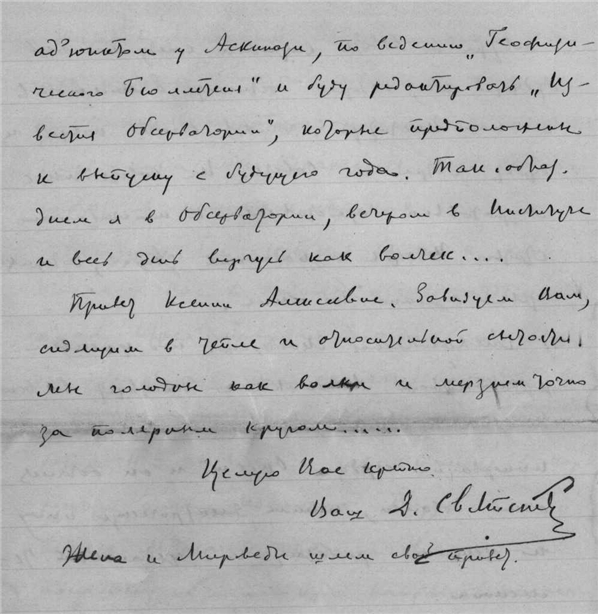 ад'юнктом у Аскинази, по ведению „Геофизи-
ческого Бюллетеня" и буду редактировать „Из-
вестия Обсерватории", которые предположены
к выпуску с будущего года. Так. образ.
днем я в Обсерватории, вечером в Институте
и весь день верчусь как волчек....
Привет Ксении Алексеевне. Завидуем Вам,
сидящим в тепле и относительной сытости.
Мы голодны как волки и мерзнем точно
за полярным кругом......
Целую Вас крепко.
Ваш Д. Святский
Жена и шлем свой привет.